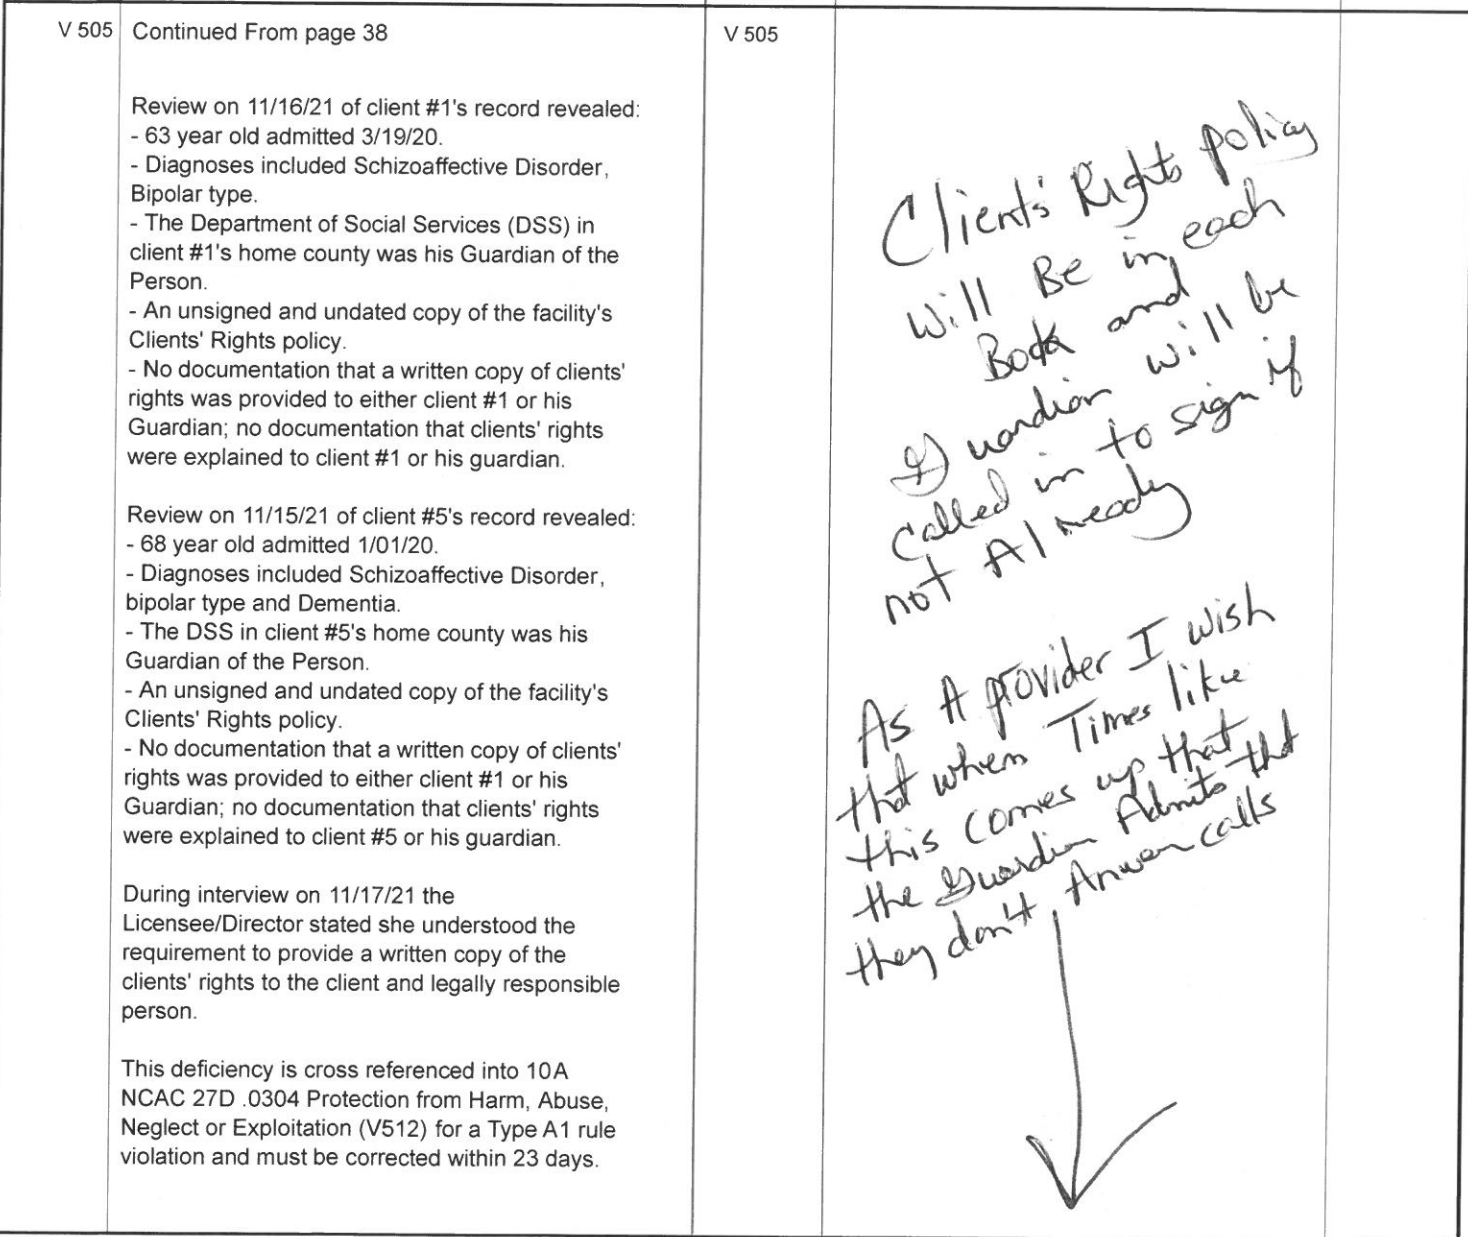 V 505 Continued From page 38
Review on 11/16/21 of client #1's record revealed:
- 63 year old admitted 3/19/20.
- Diagnoses included Schizoaffective Disorder,
Bipolar type.
- The Department of Social Services (DSS) in
client #1's home county was his Guardian of the
Person.
- An unsigned and undated copy of the facility's
Clients' Rights policy.
- No documentation that a written copy of clients'
rights was provided to either client #1 or his
Guardian; no documentation that clients' rights
were explained to client #1 or his guardian.
Review on 11/15/21 of client #5's record revealed:
- 68 year old admitted 1/01/20.
- Diagnoses included Schizoaffective Disorder,
bipolar type and Dementia.
- The DSS in client #5's home county was his
Guardian of the Person.
- An unsigned and undated copy of the facility's
Clients' Rights policy.
- No documentation that a written copy of clients'
rights was provided to either client #1 or his
Guardian; no documentation that clients' rights
were explained to client #5 or his guardian.
During interview on 11/17/21 the
Licensee/Director stated she understood the
requirement to provide a written copy of the
clients' rights to the client and legally responsible
person.
This deficiency is cross referenced into 10A
NCAC 27D .0304 Protection from Harm, Abuse,
Neglect or Exploitation (V512) for a Type A1 rule
violation and must be corrected within 23 days.
V 505
Clients' Rights policy
Will Be in each
Book and
Guardian will be
called in to sign if
not Already
As A provider I wish
that when Times like
this comes up that
the Guardian Admits that
they don't Anwer calls